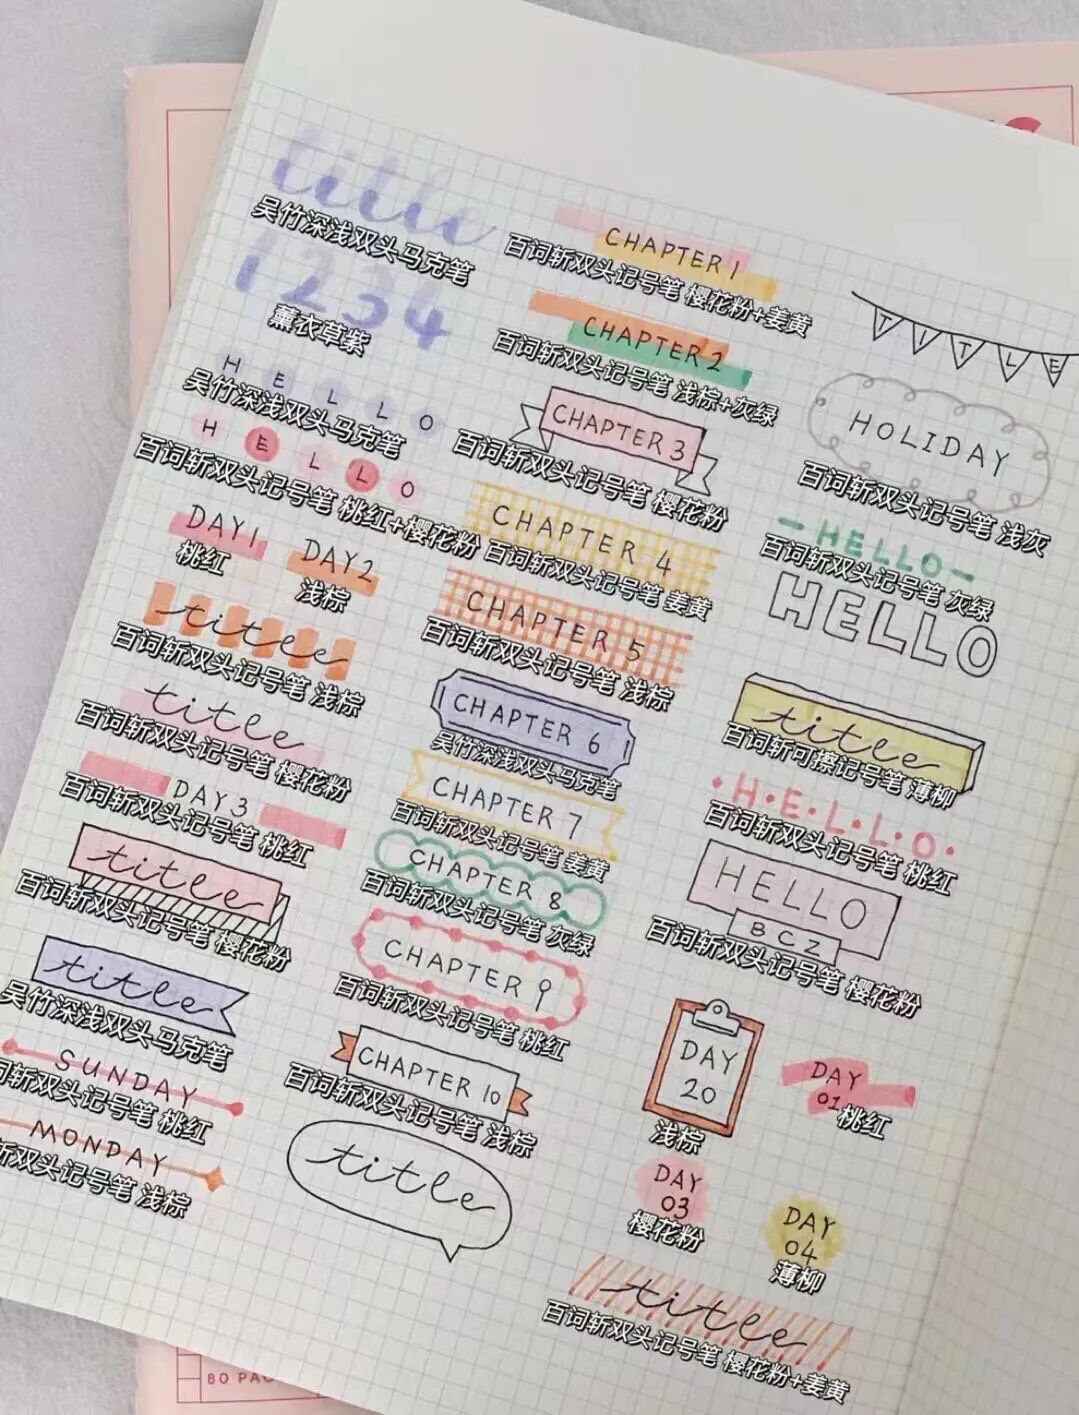 title
吴竹深浅双头马克笔
1234
薰衣草紫
HELLO
吴竹深浅双头马克笔
HELLO
百词斩双头记号笔 桃红+樱花粉
DAY1
桃红
DAY2
浅棕
title
百词斩双头记号笔 浅棕
title
百词斩双头记号笔 樱花粉
DAY3
百词斩双头记号笔 桃红
title
百词斩双头记号笔 樱花粉
title
吴竹深浅双头马克笔
SUNDAY
词斩双头记号笔 桃红
MONDAY
斩双头记号笔 浅棕
CHAPTER 1
百词斩双头记号笔 樱花粉+姜黄
CHAPTER 2
百词斩双头记号笔 浅棕+灰绿
CHAPTER 3
百词斩双头记号笔 樱花粉
CHAPTER 4
百词斩双头记号笔 姜黄
CHAPTER 5
百词斩双头记号笔 浅棕
CHAPTER 6
吴竹深浅双头马克笔
CHAPTER 7
百词斩双头记号笔 姜黄
CHAPTER 8
百词斩双头记号笔 灰绿
CHAPTER 9
百词斩双头记号笔 桃红
CHAPTER 10
百词斩双头记号笔 浅棕
title
TITLE
HOLIDAY
百词斩双头记号笔 浅灰
-HELLO-
百词斩双头记号笔 灰绿
HELLO
title
百词斩可擦记号笔 薄柳
·H·E·L·L·O·
百词斩双头记号笔 桃红
HELLO
BCZ
百词斩双头记号笔 樱花粉
DAY
20
浅棕
DAY
01
桃红
DAY
03
樱花粉
DAY
04
薄柳
title
百词斩双头记号笔 樱花粉+姜黄
80